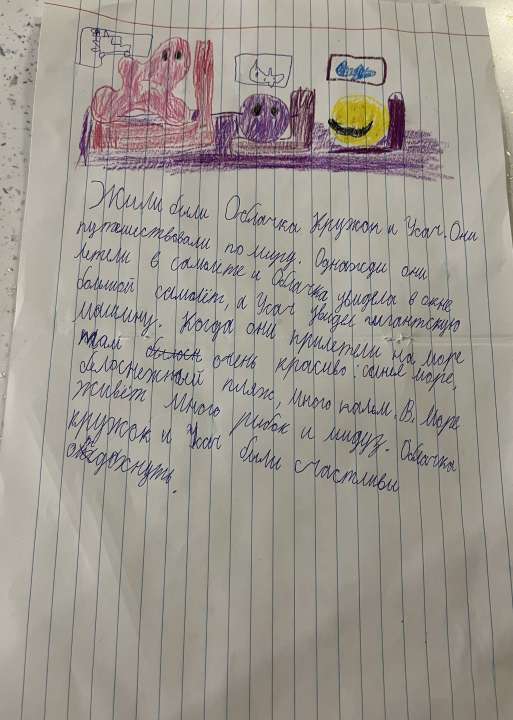 Жили были Облачка Кружок и Усач. Они
путешествовали по миру. Однажди они
летели в самолете и Облачка увидела в окне
большой самолёт, а Усач увидел гигантскую
машину. Когда они прилетели на море
там белосн очень красиво: синее море,
белоснежный пляж, много палем. В. Море
живёт много рибок и мидуз. Облачка
кружок и Усач били счастливи
отдохнуть.